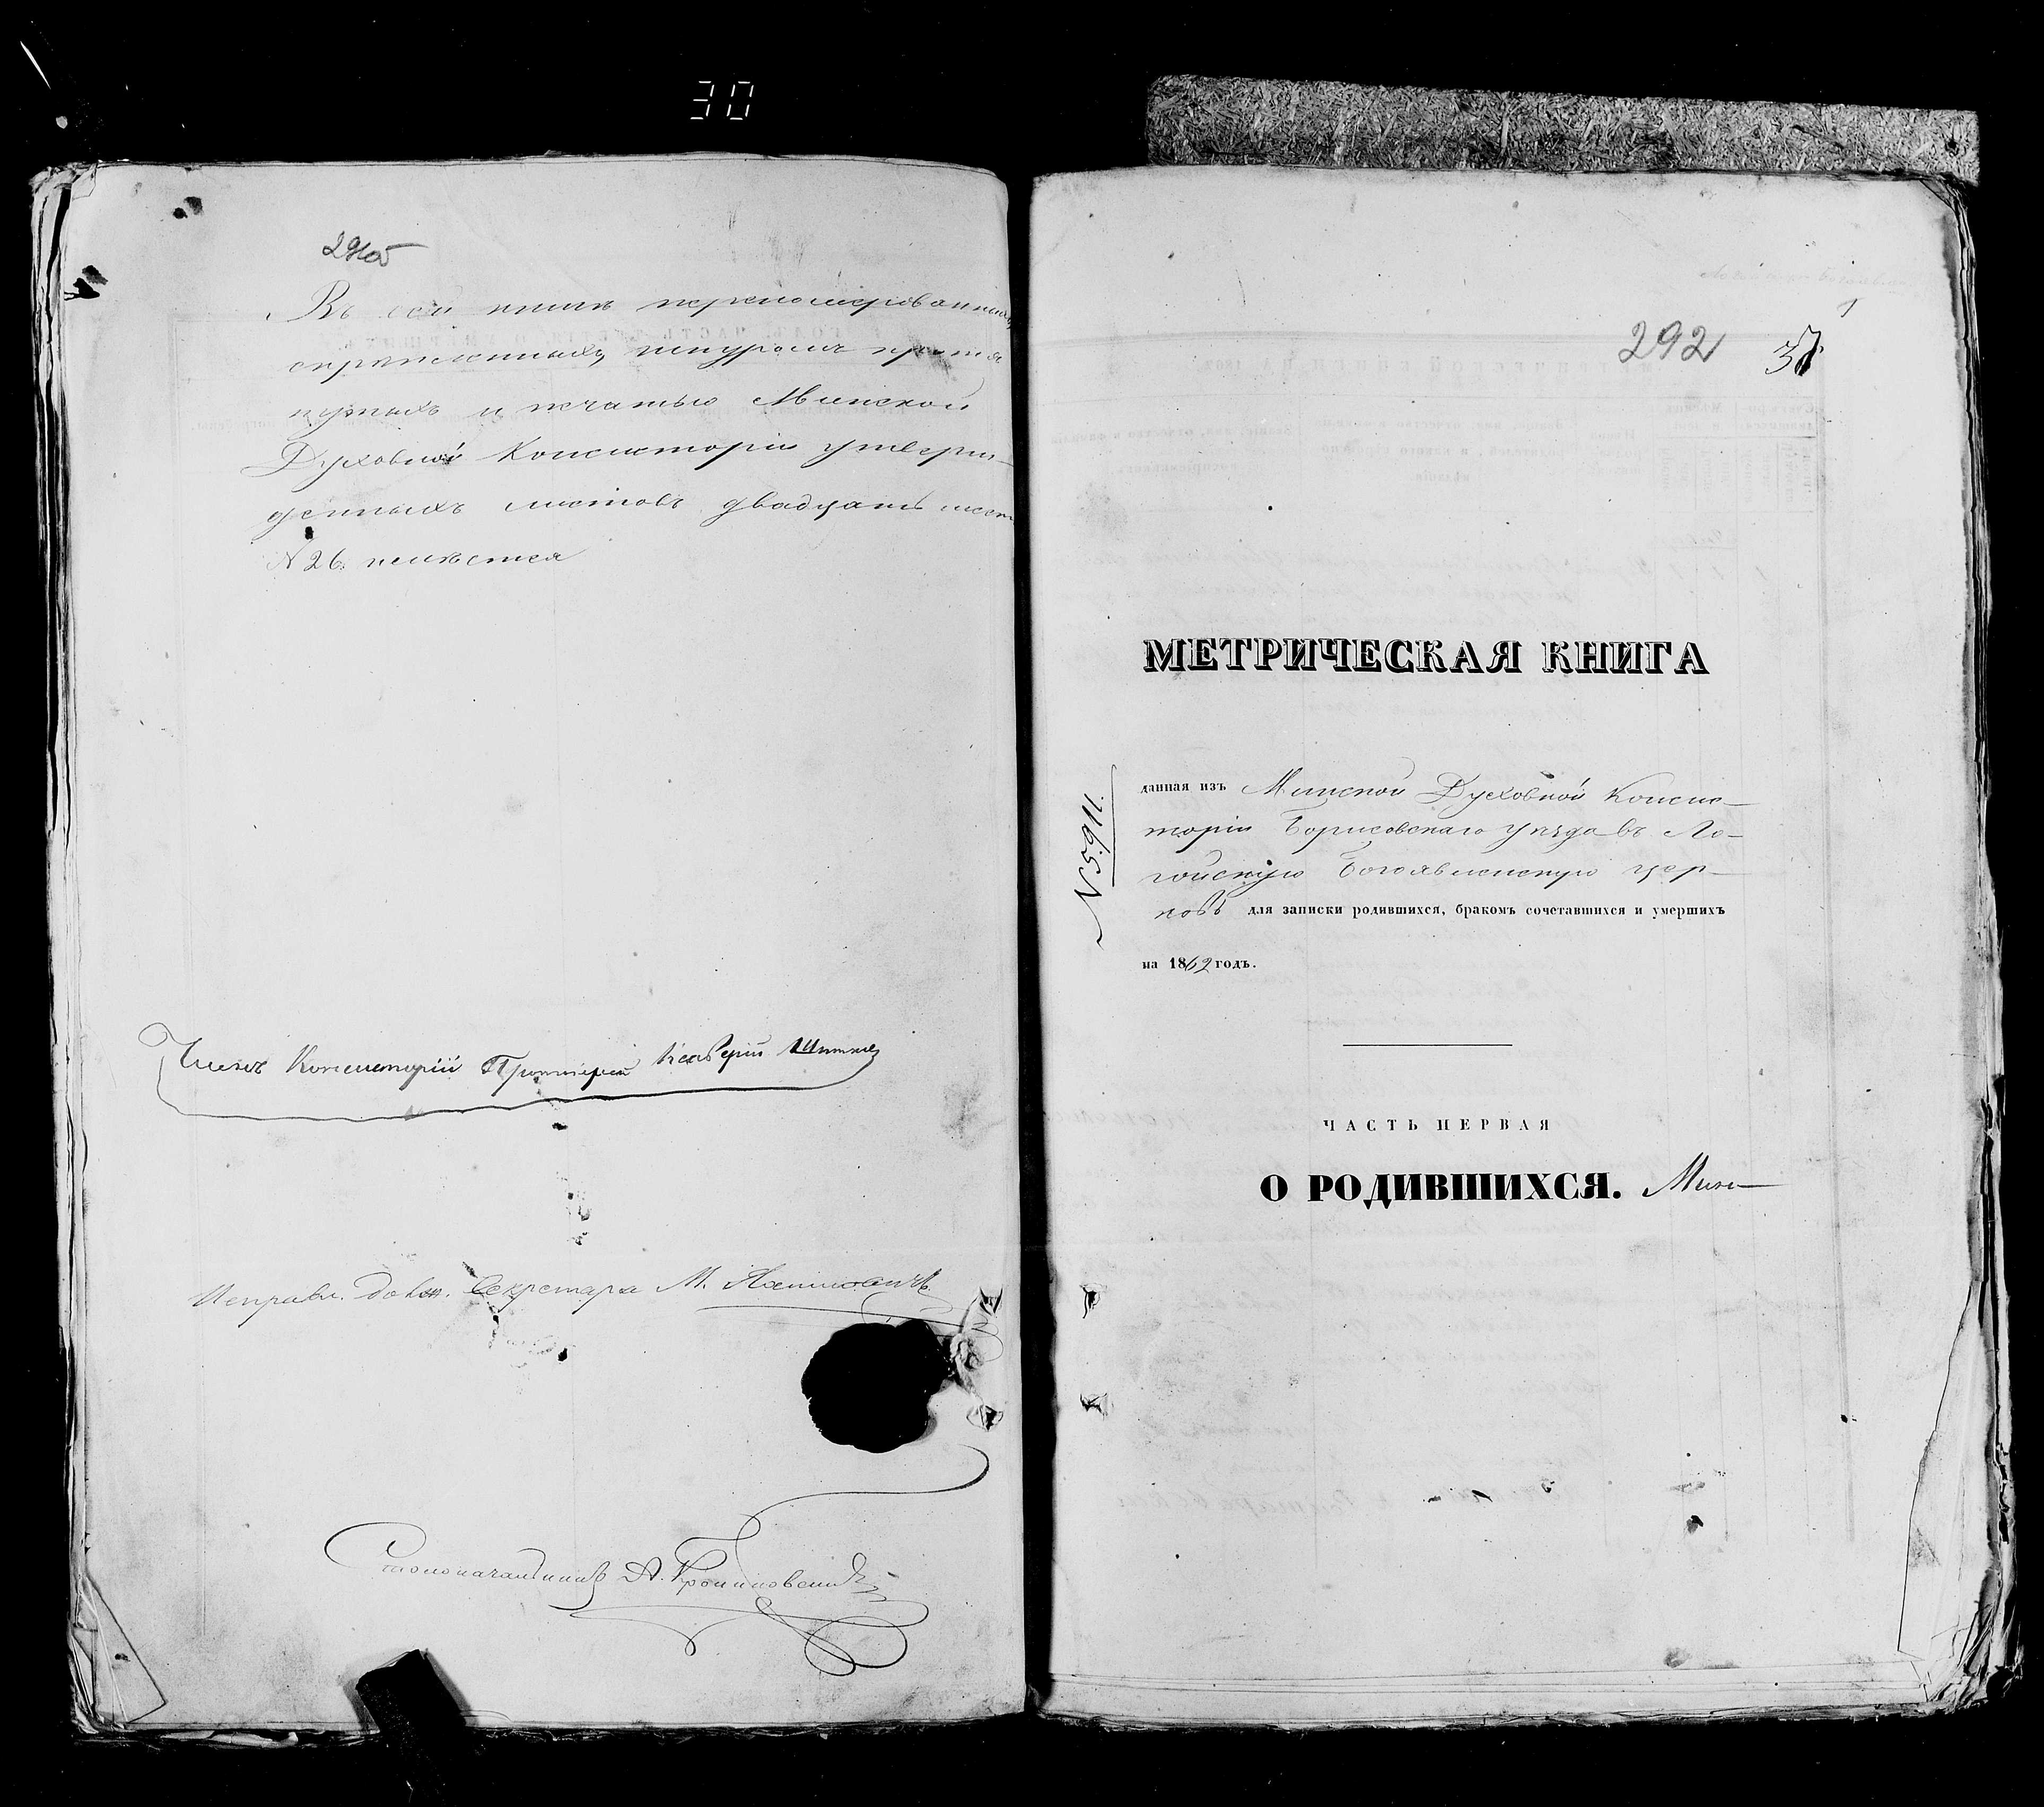 30
291об
Въ сей книгѣ перенумерованныхъ
скрѣпленныхъ, шнуромъ прошну-
рныхъ и печатью Минской
Духовной Консисторіи утверж-
денныхъ листовъ двадцать шесть
№ 26. имѣется
Членъ Консисторіи Протоіерей
Исправл. долж. Секретаря М.
Столоначальникъ А.
1
292 37
МЕТРИЧЕСКАЯ КНИГА
№ 5911.
данная изъ Минской Духовной Консис-
торіи Борисовскаго уѣзда въ Ло-
гойскую Богоявленскую цер-
ковь для записки родившихся, бракомъ сочетавшихся и умершихъ
на 1862 годъ.
ЧАСТЬ ПЕРВАЯ
О РОДИВШИХСЯ.